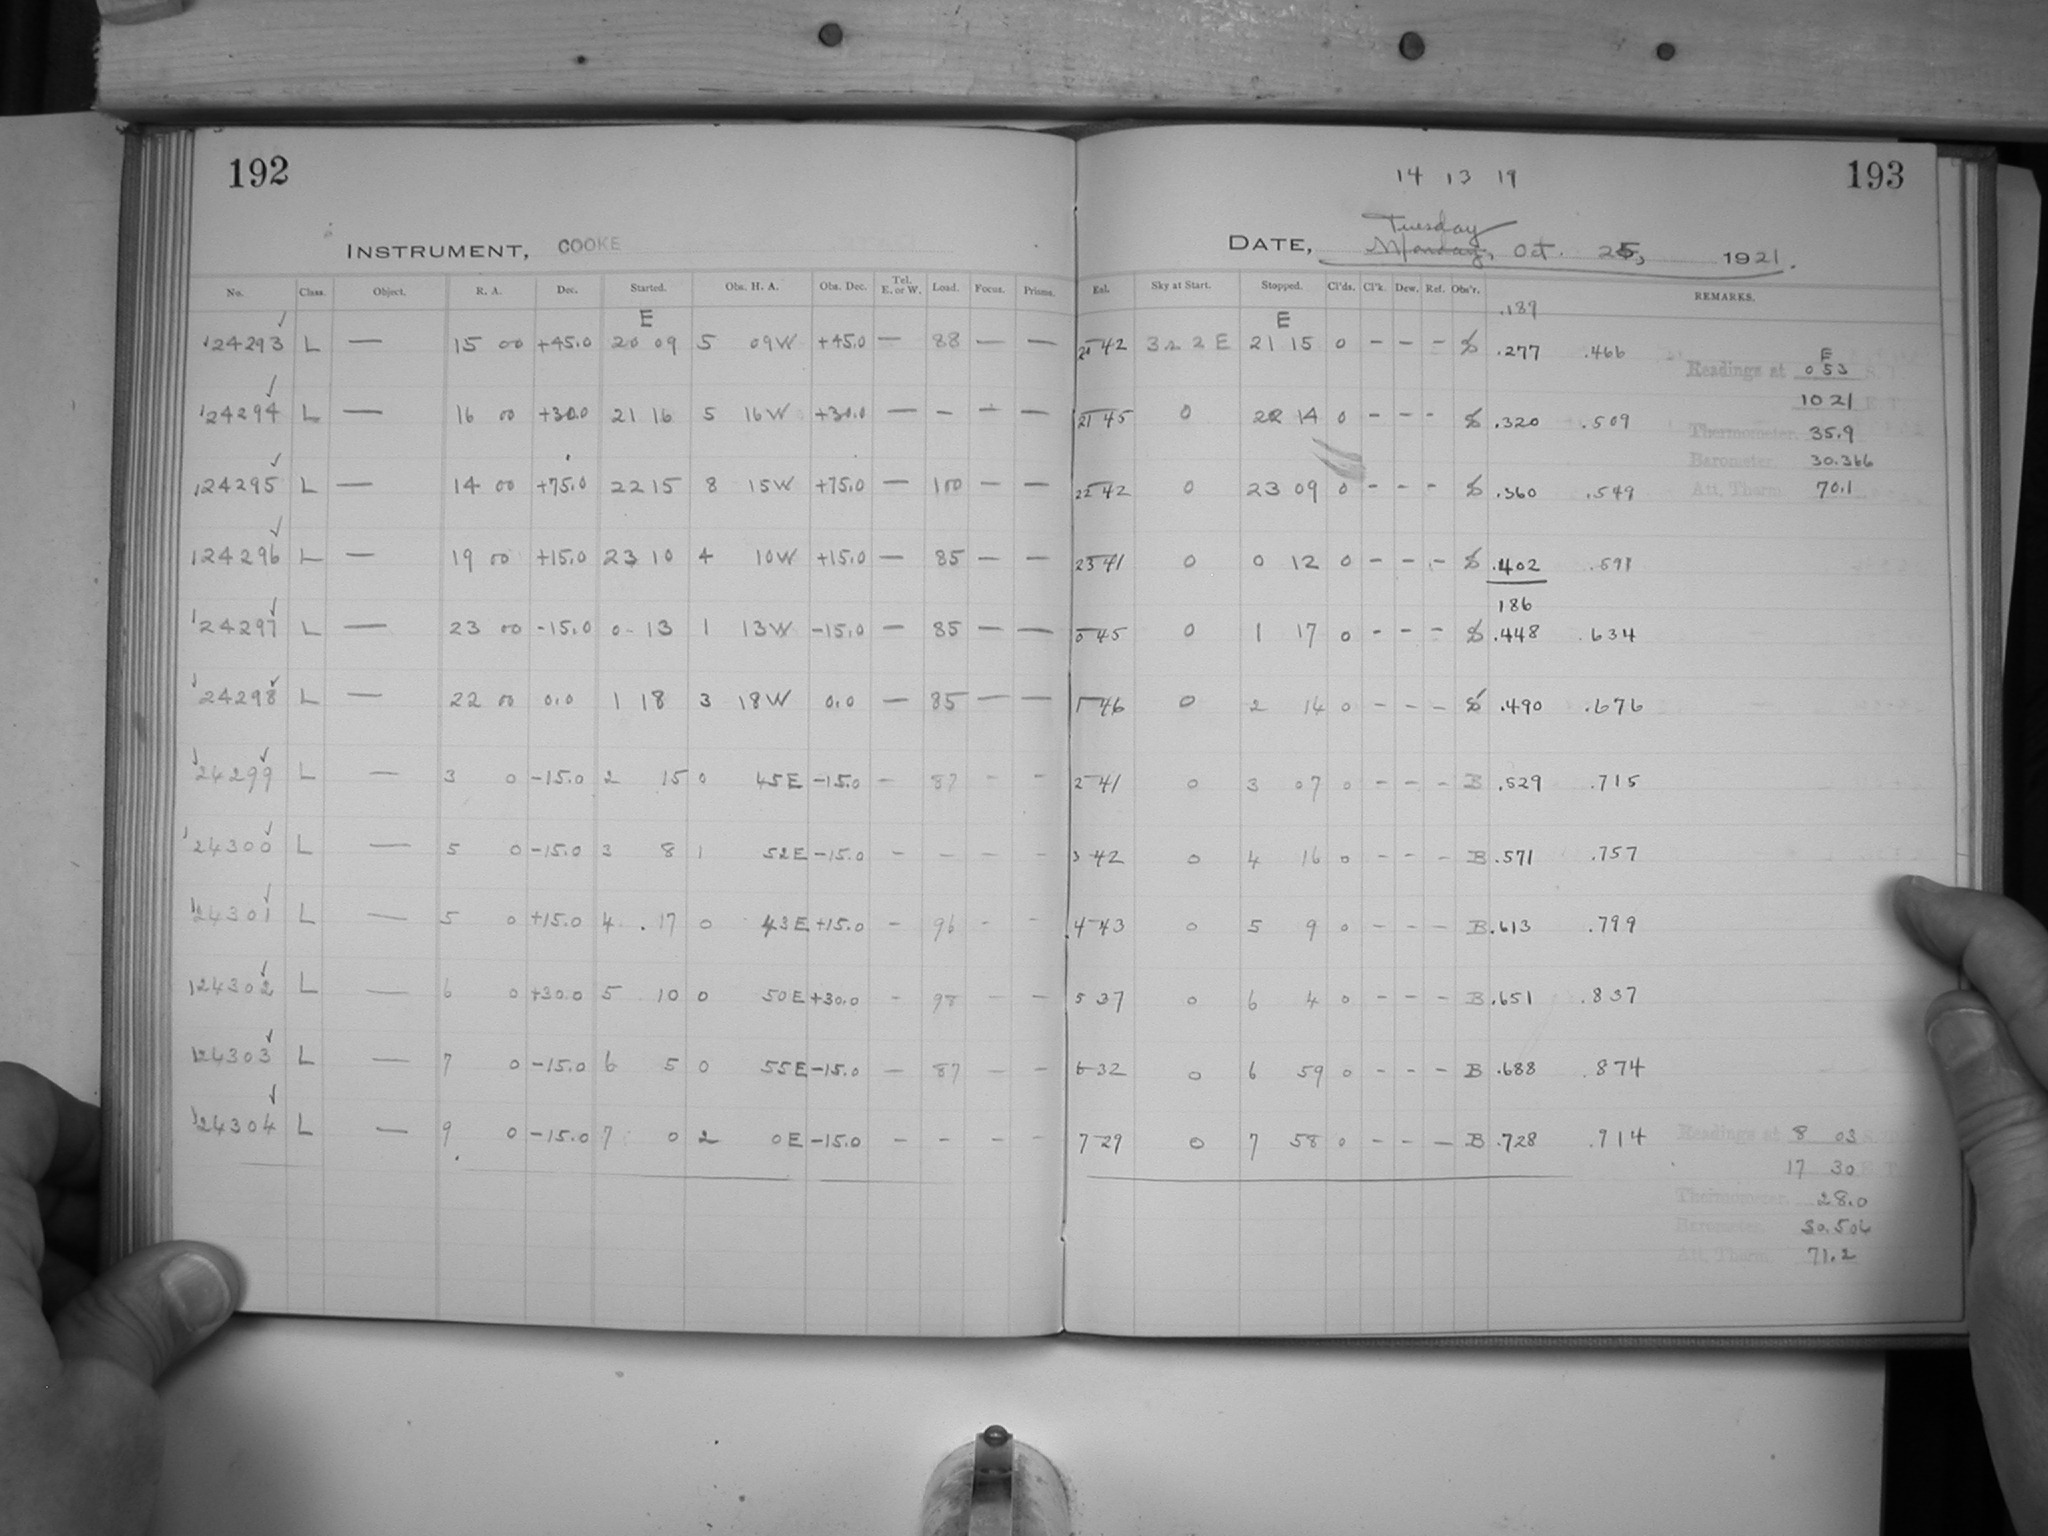 192
INSTRUMENT, COOKE
No. Class. Object. R. A. Dec. Started. Obs. H. A. Obs. Dec. Tel. E. or W. Load. Focus. Prisms.
E
124293 L — 15 00 +45.0 20 09 5 09W +45.0 — 88 — —
124294 L — 16 00 +30.0 21 16 5 16W +30.0 — - — —
124295 L — 14 00 +75.0 22 15 8 15W +75.0 — 100 — —
124296 L — 19 00 +15.0 23 10 4 10W +15.0 — 85 — —
124297 L — 23 00 -15.0 0 13 1 13W -15.0 — 85 — —
124298 L — 22 00 0.0 1 18 3 18W 0.0 — 85 — —
124299 L — 3 0 -15.0 2 15 0 45E -15.0 - 87 - -
124300 L — 5 0 -15.0 3 8 1 52E -15.0 - - - -
124301 L — 5 0 +15.0 4 17 0 43E +15.0 - 96 - -
124302 L — 6 0 +30.0 5 10 0 50E +30.0 - 98 - -
124303 L — 7 0 -15.0 6 5 0 55E -15.0 - 87 - -
124304 L — 9 0 -15.0 7 0 2 0E -15.0 - - - -
14 13 19
193
Tuesday
DATE, Monday, Oct. 25, 1921.
Sky at Start. Stopped. Cl'ds. Cl'k. Dew. Ref. Obs'r. REMARKS.
.189
E
21 42 2 E 21 15 0 - - - .277 .466
21 45 0 22 14 0 - - - .320 .509
22 42 0 23 09 0 - - - .360 .549
23 41 0 0 12 0 - - - .402 .591
186
0 45 0 1 17 0 - - - .448 .634
1 46 0 2 14 0 - - - .490 .676
2 41 0 3 07 0 - - - B .529 .715
3 42 0 4 16 0 - - - B .571 .757
4 43 0 5 9 0 - - - B .613 .799
5 37 0 6 4 0 - - - B .651 .837
6 32 0 6 59 0 - - - B .688 .874
7 29 0 7 58 0 - - - B .728 .914
E
Readings at 0 53 S. T.
10 21 E. T.
Thermometer. 35.9
Barometer. 30.366
Att. Therm. 70.1
Readings at 8 03 S. T.
17 30 E. T.
Thermometer. 28.0
Barometer. 30.506
Att. Therm. 71.2